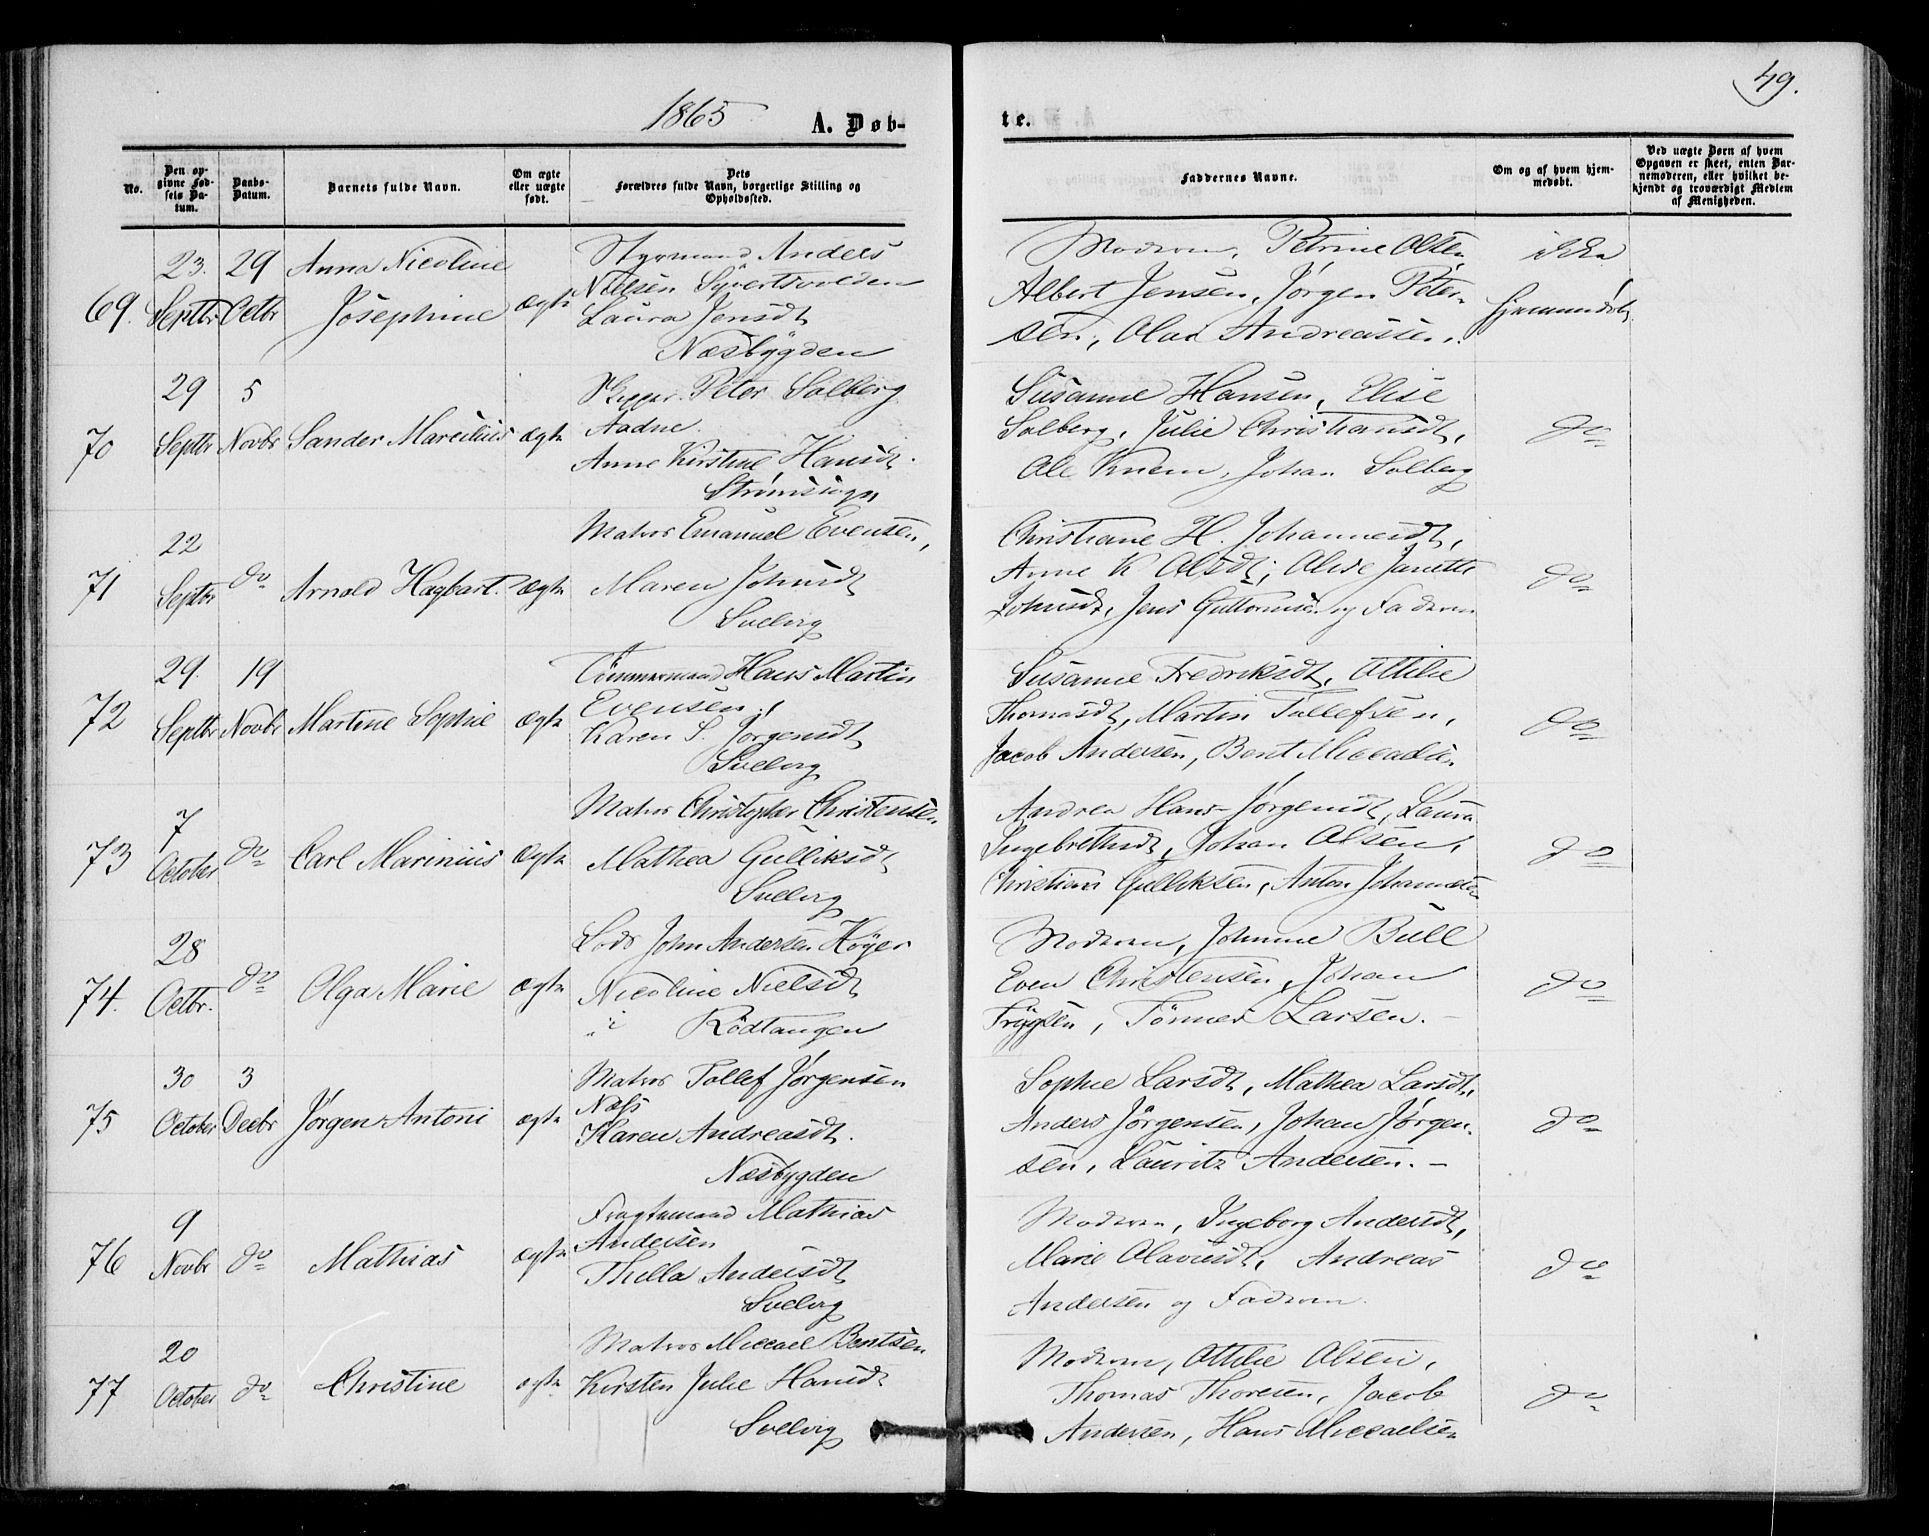 49.
1865 A. Døb- te.
No. Den opgivne Fødsels Datum. Daabs-Datum. Barnets fulde Navn. Om ægte eller uægte født. Dets Forældres fulde Navn, borgerlige Stilling og Opholdssted. Faddernes Navne. Om og af hvem hjemmedøbt. Ved uægte Børn af hvem Opgaven er skeet, enten Barnemoderen, eller hvilket bekjendt og troværdigt Medlem af Menigheden.
69. 23. Septbr 29 Octbr Anna Nicoline Josephine ægte
Styrmand Anders
Nielsen Syvertsvolden
Laura Jensdt
Næsbygden
Moderen, Petrine Olsen
Albert Jensen, Jørgen Peter-
sen, Olav Andreassen.
ikke
hjemmedøbt
70 29 Septbr 5 Novbr Sander Marcilius ægte
Skipper Peter Solberg
Aadne.
Anne Kirstine Hansdt.
Strømsogn
Susanne Hansen, Elise
Solberg, Julie Christiansdt,
Ole Knem, Johan Solberg
do
71 22 Septbr do Arnold Hagbart. ægte
Matros Emanuel Evensen,
Maren Johnsdt
Svelvig
Christiane H. Johannesdt,
Anne K Olsdt, Olise Janette
Johnsdt, Jens Guttormsen og Faderen
do
72 29. Septbr 19 Novbr Martine Sophie ægte
Tømmermand Hans Martin
Evensen,
Karen S. Jørgensdt
Svelvig
Susanne Fredriksdt, Ottilie
Thomasdt, Martin Tollefsen,
Jacob Andersen, Bent Miccaelsen
do
73 7 October do Carl Marinius ægte
Matros Christopher Christensen
Mathea Gulliksdt
Svelvig
Andrea Hans-Jørgensdt, Laura
Ingebrethsdt, Johan Olsen,
Christian Gulliksen, Anton Johannesen
do
74. 28 Octbr. do Olga Marie ægte
Lods John Andersen Høyer
Nicoline Nielsdt
i Rødtangen
Moderen, Johanne Bull
Even Christensen, Johan
Trygsen, Tønnes Larsen. –
do
75 30 October 3 Decbr Jørgen Antoni ægte
Matros Tollef Jørgensen
Næss
Karen Andreasdt.
Næsbygden
Sophie Larsdt, Mathea Larsdt,
Anders Jørgensen, Johan Jørgen-
sen, Lauritz Andersen. –
do
76 9 Novbr do Mathias ægte
Fragtemand Mathias
Andersen
Thella Andersdt
Svelvig
Moderen, Ingeborg Andersdt,
Marie Olavesdt, Andreas
Andersen og Faderen.
do
77 20 October do Christine ægte
Matros Miccael Bentsen
Kirsten Julie Hansdt
Svelvig
Moderen, Ottilie Olsen,
Thomas Thoresen, Jacob
Andersen, Hans Miccaelsen
do